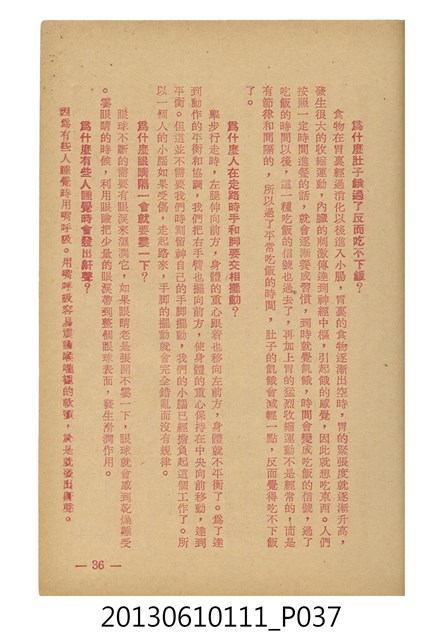 為什麼肚子餓過了反而吃不下飯?
食物在胃裏經過消化以後進入小腸,胃裏的食物逐漸出空時,胃的緊張度就逐漸升高,
發生很大的收縮運動,內臟的刺激傳達到神經中樞,引起餓的感覺,因此就想吃東西。人們
按照一定時間進餐的話,就會逐漸變成習慣,到時就覺飢餓,時間會變成吃飯的信號,過了
吃飯的時間以後,這一種吃飯的信號也過去了,再加上胃的猛烈收縮運動不是經常的,而是
有節律和間隔的,所以過了平常吃飯的時間,肚子的飢餓會減輕一點,反而覺得吃不下飯
了。
為什麼人在走路時手和脚要交相擺動?
舉步行走時,左腿伸向前方,身體的重心跟着也移向左前方,身體就不平衡了。爲了達
到動作的平衡和協調,我們把右手臂也擺向前方,使身體的重心保持在中央向前移動,達到
平衡。但這並不需要我們時刻留神自己的手脚擺動,我們的小腦已經擔負起這個工作了。所
以一個人的小腦如果受傷,走起路來,手脚的擺動就會完全錯亂而沒有規律。
為什麼眼睛隔一會就要霎一下?
眼球不斷的需要有眼淚來濕潤它,如果眼睛老是張開不霎一下,眼球就會感到乾燥難受
。霎眼睛的時候,利用眼瞼把少量的眼淚帶到整個眼球表面,產生滑潤作用。
為什麼有些人睡覺時會發出鼾聲?
因為有些人睡覺時用嘴呼吸。用嘴呼吸容易震動喉嚨裏的軟顎,於是就發出鼾聲。
— 36 —
20130610111_P037